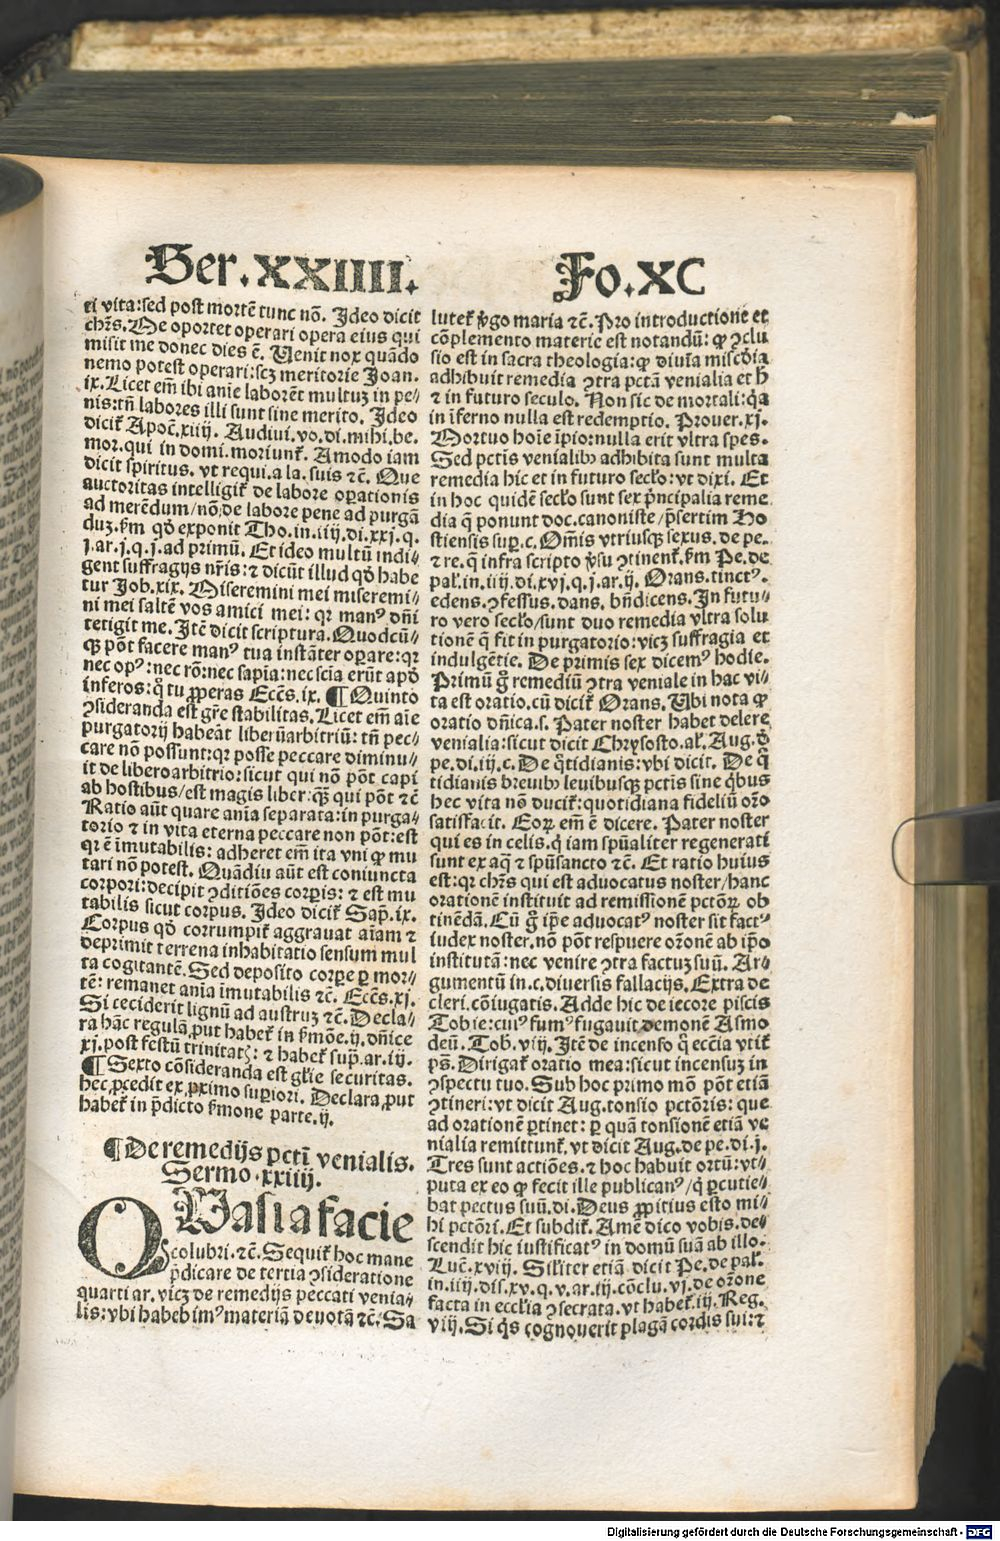 Ser.XXIIII. Fo.XC
ti vita:sed post mortē tunc nō. Ideo dicit
chr̄s. Me oportet operari opera eius qui
misit me donec dies ē. Uenit nox quādo
nemo potest operari:scꝫ meritorie Joan.
ix. Licet em̄ ibi anīe laborēt multuꝫ in pe⸗
nis:tn̄ labores illi sunt sine merito. Ideo
diciť Apoc̄.xiiij. Audiui.vo.di.mihi.be.
mor.qui in domi.moriunť. Amodo iam
dicit spiritus. vt requi.a la.suis ⁊c̄. Que
auctoritas intelligiť de labore oꝑationis
ad merēdum/nō,de labore pene ad purgā
duꝫ.ẜm qd̄ exponit Tho.in.iiij.di.xxj.q.
j.ar.j.q.j.ad primū. Et ideo multū indi⸗
gent suffragijs nr̄is:⁊ dicūt illud qd̄ habe
tur Job.xix. Miseremini mei miseremi⸗
ni mei saltē vos amici mei: qr manꝰ dn̄i
tetigit me. Itē dicit scriptura. Quodcū⸗
qꝫ pōt facere manꝰ tua instāter oꝑare:qr
nec opꝰ:nec rō:nec sapīa:nec scīa erūt apd̄
inferos:q̄ tu ꝓperas Ecc̄s.ix. ¶ Quinto
ꝯsideranda est gr̄e stabilitas. Licet em̄ aīe
purgatorij habeāt liberūarbitriū: tn̄ pec⸗
care nō possunt:qr posse peccare diminu⸗
it de liberoarbitrio:sicut qui nō pōt capi
ab hostibus/est magis liber:qꝫ qui pōt ⁊c̄
Ratio aūt quare anīa separata:in purga⸗
torio ⁊ in vita eterna peccare non pōt:est
qr ē īmutabilis: adheret em̄ ita vni ꝙ mu
tari nō potest. Quādiu aūt est coniuncta
corpori:decipit ꝯditiōes corꝑis: ⁊ est mu
tabilis sicut corpus. Ideo diciť Sap̄.ix.
Corpus qd̄ corrumpiť aggrauat aīam ⁊
deprimit terrena inhabitatio sensum mul
ta cogitantē. Sed deposito corꝑe ꝑ mor⸗
tē: remanet anīa īmutabilis ⁊c̄. Ecc̄s.xj.
Si ceciderit lignū ad austruꝫ ⁊c̄. Decla⸗
ra hāc regulā,put habeť in ẜmōe.ij.dn̄ice
xj.post festū trinitatꝭ: ⁊ habeť sup̄.ar.iij.
¶ Sexto cōsideranda est gl̄ie securitas.
hec,ꝓcedit ex,ꝓximo suꝑiori. Declara,put
habeť in p̄dicto ẜmone parte.ij.
¶ De remedijs pctī venialis.
Sermo.xxiiij.
QUasi a facie
colubri.⁊c̄. Sequiť hoc mane
p̄dicare de tertia ꝯsideratione
quarti ar.vicꝫ de remedijs peccati venia⸗
lis:vbi habebimꝰ materiā deuotā ⁊c̄. Sa
luteť v̄go maria ⁊c̄. Pro introductione et
cōplemento materie est notandū: ꝙ ꝯclu
sio est in sacra theologia:ꝙ diuīa miscd̄ia
adhibuit remedia ꝯtra pctā venialia et h̄
⁊ in futuro seculo. Non sic de mortali:qa
in īferno nulla est redemptio. Prouer.xj.
Mortuo hoīe īpio:nulla erit vltra spes.
Sed pctīs venialibꝰ adhibita sunt multa
remedia hic et in futuro secl̄o: vt dixi. Et
in hoc quidē secl̄o sunt sex p̄ncipalia reme
dia q̄ ponunt doc.canoniste/p̄sertim Ho
stiensis suꝑ.c. Om̄is vtriusqꝫ sexus.de pe.
⁊ re.q̄ infra scripto v̄su ꝯtinenť.ẜm Pe.de
pal̄.in.iiij.di.xvj.q.j.ar.ij. Orans.tinctꝰ.
edens.ꝯfessus.dans.bn̄dicens. In futu⸗
ro vero secl̄o/sunt duo remedia vltra solu
tionē q̄ fit in purgatorio:vicꝫ suffragia et
indulgētie. De primis sex dicemꝰ hodie.
Primū g̊ remediū ꝯtra veniale in hac vi⸗
ta est oratio.cū diciť Orans. Ubi nota ꝙ
oratio dn̄ica.s. Pater noster habet delere
venialia:sicut dicit Chrysosto.al̄. Aug.d̄
pe.di.iij.c. De q̄tidianis:vbi dicit. De q̄
tidianis breuibꝰ leuibusqꝫ pctīs sine qbus
hec vita nō duciť:quotidiana fideliū or̄o
satisfacit. Eoꝝ em̄ ē dicere. Pater noster
qui es in celis.q̄ iam spūaliter regenerati
sunt ex aq̄ ⁊ spūsancto ⁊c̄. Et ratio huius
est:qr chr̄s qui est aduocatus noster/hanc
orationē instituit ad remissionē pctōꝝ ob
tinēdā. Cū g̊ ip̄e aduocatꝰ noster sit factꝰ
iudex noster.nō pōt respuere or̄onē ab ip̄o
institutā: nec venire ꝯtra factuꝫ suū. Ar⸗
gumentū in.c.diuersis fallacijs. Extra de
cleri.cōiugatis. Adde hic de iecore piscis
Tobie:cuiꝰ fumꝰ fugauit demonē Asmo
deū. Tob.viij. Itē de incenso q̄ ecc̄ia vtiť
ps̄. Dirigať oratio mea: sicut incensuꝫ in
ꝯspectu tuo. Sub hoc primo mō pōt etiā
ꝯtineri:vt dicit Aug.tonsio pctōris: que
ad orationē ꝑtinet: ꝑ quā tonsionē etiā ve
nialia remittunť.vt dicit Aug.de pe.di.j.
Tres sunt actiōes.⁊ hoc habuit ortū:vt⸗
puta ex eo ꝙ fecit ille publicanꝰ/q̄ ꝑcutie⸗
bat pectus suū.di. Deus ꝓpitius esto mi⸗
hi pctōri. Et subdiť. Amē dico vobis.de⸗
scendit hic iustificatꝰ in domū suā ab illo.
Luc̄.xviij. Sil̄iter etiā dicit Pe.de pal̄.
in.iiij.dis.xv.q.v.ar.iij.cōclu.vj.de or̄one
facta in eccl̄ia ꝯsecrata.vt habeť.iij. Reg.
viij. Si qs cognouerit plagā cordis sui:⁊
Digitalisierung gefördert durch die Deutsche Forschungsgemeinschaft - DFG